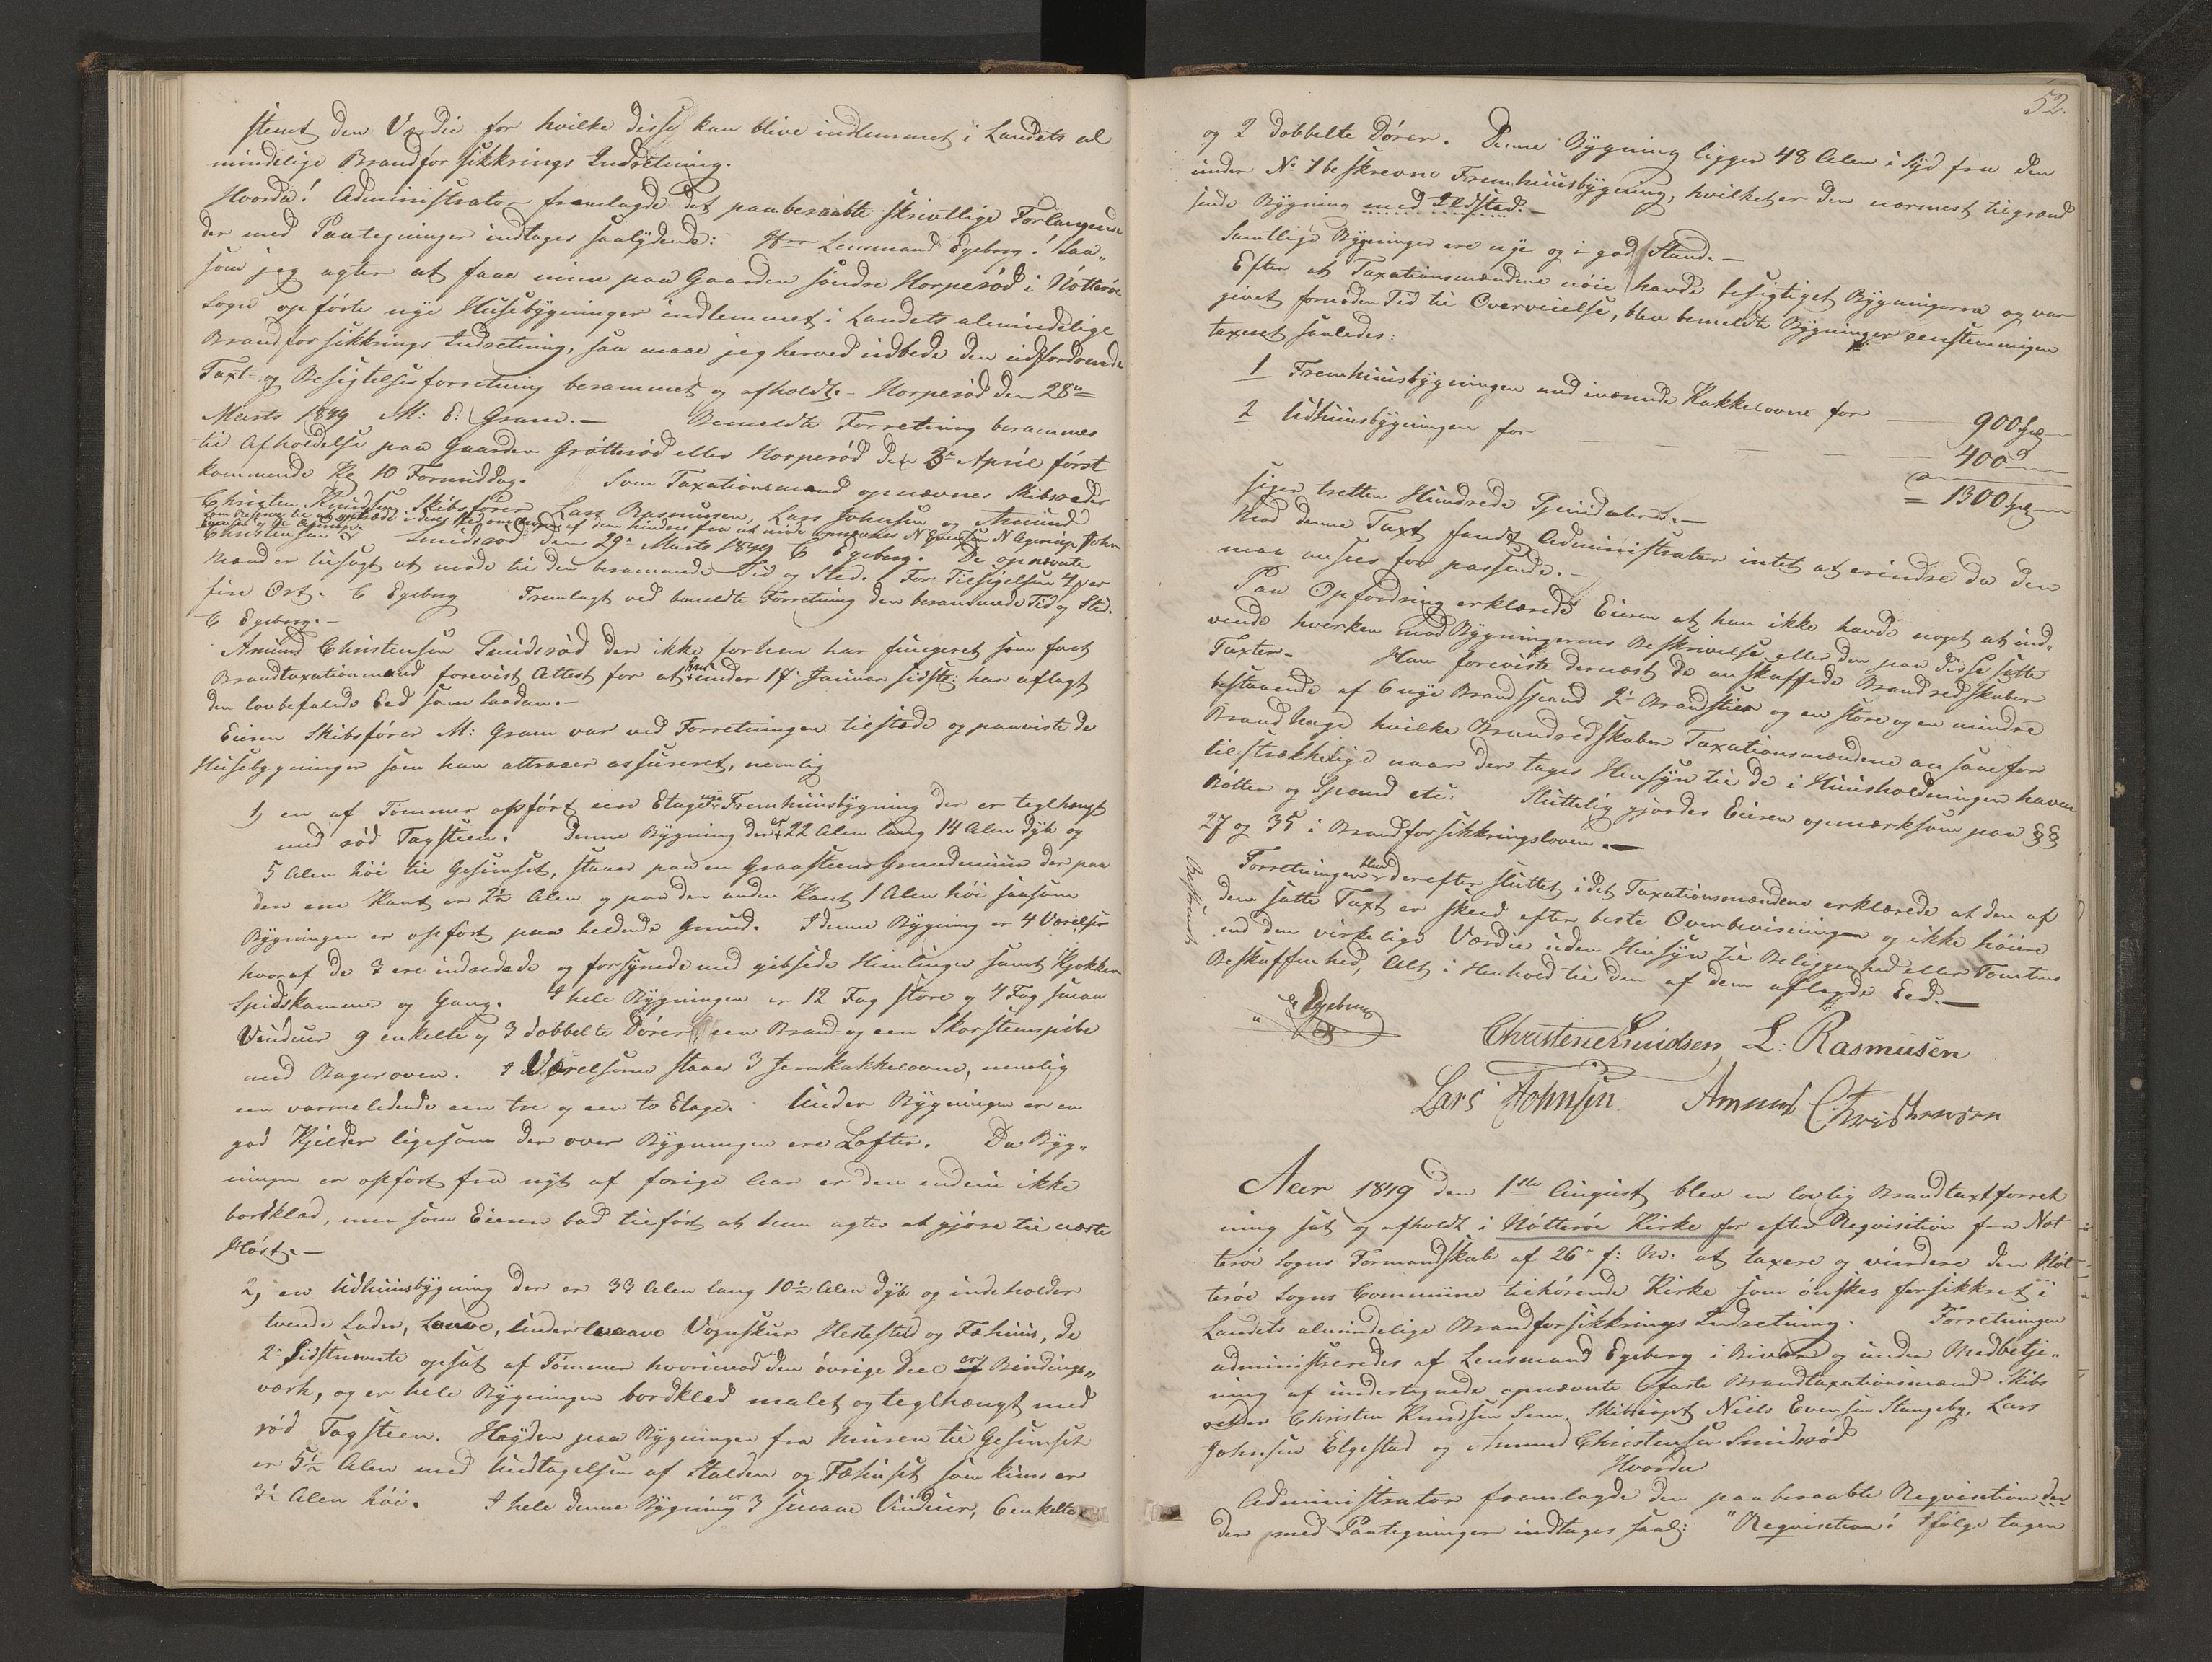 stemt den Værdie for hvilke disse kan blive indlemmet i Landets al
mindelige Brandforsikkrings Indretning.
Hvorda! Administrator fremlagde det paaberaabte skrivtlige Forlangende
der med Paategninger indtages saalydende: Hr Lensmand Egeberg! Saa-
som jeg agter at faae mine paa Gaarden søndre Horperød i Nøtterøe
Sogn opførte nye Husebygninger indlemmet i Landets almindelige
Brandforsikkrings Indretning, saa maae jeg herved udbede den udfordrende
Taxt- og Besigtelsesforretning berammet og afholdt. - Horperød den 28de
Marts 1849 M: E: Gram. - Bemeldte Forretning berammes
til Afholdelse paa Gaarden Grøtterød eller Horperød den 3de April først
kommende Kl 10 Formiddag. Som Taxationsmænd opnævnes Skibsreder
Christen Knudsen, Skibsfører Lars Rasmusen, Lars Johnsen og Amund
Christensen Smidsrød den 29de Marts 1849 C Egeberg. De opnævnte
Mænd er tilsagt at møde til den berammede Tid og Sted. For Tilsigelsen 4 er
fire Ort. C Egeberg Fremlagt ved bemeldte Forretning den berammede Tid og Sted.
C Egeberg. -
Amund Christensen Smidsrød der ikke forhen har fungeret som fast
Brandtaxationsmand forevist Attest for at han under 17de Januar sidste har aflagt
den lovbefalede Eed som saadan. -
Eieren Skibsfører M: Gram var ved Forretningen tilstæde og paaviste de
Husebygninger som han attraaer assureret, nemlig
1, en af Tømmer opført een Etages nye Fremhuusbygning der er teglhængt
med rød Tagsteen. Denne Bygning der er 22 Alen lang 14 Alen dyb og
5 Alen høi til Gesimset, staaer paa en Graasteens Grundmuur der paa
den ene Kant er 2½ Alen og paa den anden Kant 1 Alen høi saasom
Bygningen er opført paa heldende Grund. I denne Bygning er 4 Værelser
hvoraf de 3 ere indredede og forsynede med gibsede Himlinger samt Kjøkken
Spidskammer og Gang. I hele Bygningen er 12 Fag store og 4 Fag smaa
Vinduer 9 enkelte og 3 dobbelte Dører, een Brand- og een Skorsteenspibe
med Bagerovn. I Værelserne staaer 3 Jernkakkelovne, nemlig
een varmeledende een tre og een to Etage. Under Bygningen er en
god Kjelder ligesom der over Bygningen ere Lofter. Da Byg-
ningen er opført fra nyt af forige Aar er den endnu ikke
bordklæd, men som Eieren bad tilført at han agter at gjøre til næste
Høst. -
2, en Udhuusbygning der er 33 Alen lang 10½ Alen dyb og indeholder
tvende Lader, Laave, Underlaave Vognskuur Hestestald og Fæhuus, de
2de Sidstnævnte opsat af Tømmer hvorimod den øvrige Deel er Bindings-
værk, og er hele Bygningen bordklæd malet og teglhængt med
rød Tagsteen. Høyden paa Bygningen fra Muren til Gesimset
er 5½ Alen med Undtagelsen af Stalden og Fæhuset som kuns er
3½ Alen høi. I hele denne Bygning er 3 smaae Vinduer, 6 enkelte
52.
og 2 dobbelte Dører. Denne Bygning ligger 48 Alen i Syd fra den
under No 1 beskrevne Fremhuusbygning, hvilket er den nærmest tilgrænd
sende Bygning med Ildsted. -
Samtlige Bygninger ere nye og i god Stand. -
Efter at Taxationsmændene nøie havde besigtiget Bygningerne og var
givet fornøden Tid til Overveielse, blev bemeldte Bygninger eenstemmigen
taxeret saaledes:
1 Fremhuusbygningen med iværende Kakkelovne for — 900 Spd
2 Udhuusbygningen for — — — 400 "
= 1300 Spd
siger tretten Hundrede Speciedaler. -
Mod denne Taxt fandt Administrator intet at erindre da den
maa ansees for passende. -
Paa Opfordring erklærede Eieren at han ikke havde noget at ind-
vende hverken mod Bygningernes Beskrivelse eller den paa disse satte
Taxter. Han foreviste dernæst de anskaffede Brandredskaber
bestaaende af 6 nye Brandspand 2de Brandstier og en store og en mindre
Brandhage hvilke Brandredskaber Taxationsmændene ansaae for
tilstrækkelige naar der tages Hensyn til de i Huusholdningen havende
Bøtter og Spand etc: Sluttelig gjordes Eieren opmærksom paa §§
27 og 35 i Brandforsikkringsloven. -
Forretningen blev derefter sluttet idet Taxationsmændene erklærede at den af
dem satte Taxt er skeed efter beste Overbeviisning og ikke høiere
end den virkelige Værdie uden Hensyn til Beliggenhed eller Tomtens
Beskaffenhed, Alt i Henhold til den af dem aflagde Eed. -
C Egeberg
Christen Knudsen L: Rasmusen
Lars Johnsen Amund Christensen
Aar 1849 den 1ste August blev en lovlig Brandtaxtforret
ning sat og afholdt i Nøtterøe Kirke for efter Reqvisition fra Nøt
terøe Sogns Formandskab af 26de f: M: at taxere og vurdere den Nøt
terøe Sogns Commune tilhørende Kirke som ønskes forsikkret i
Landets almindelige Brandforsikkrings Indretning. Forretningen
administreredes af Lensmand Egeberg i Bivær og under Medbetje-
ning af undertegnede opnævnte faste Brandtaxationsmænd Skibs
reder Christen Knudsen Sem, Skibscapt Niels Evensen Stangeby, Lars
Johnsen Elgestad og Amund Christensen Smidsrød
Hvorda
Administrator fremlagde den paaberaabte Reqvisition der
der med Paategninger indtages saal: "Reqvisition! Ifølge tagen